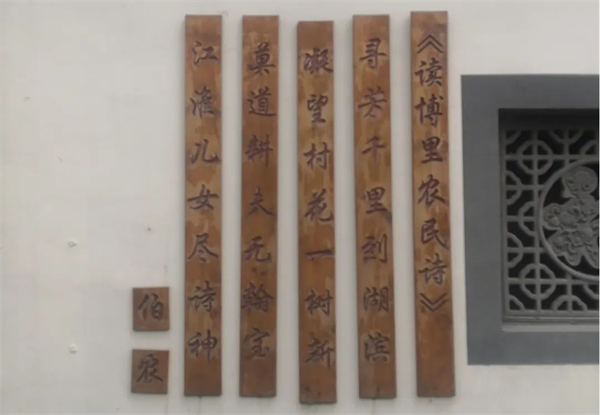 《读博里农民诗》
寻芳千里到湖滨
凝望村花一树新
莫道耕夫无翰宝
江淮儿女尽诗神
伯农